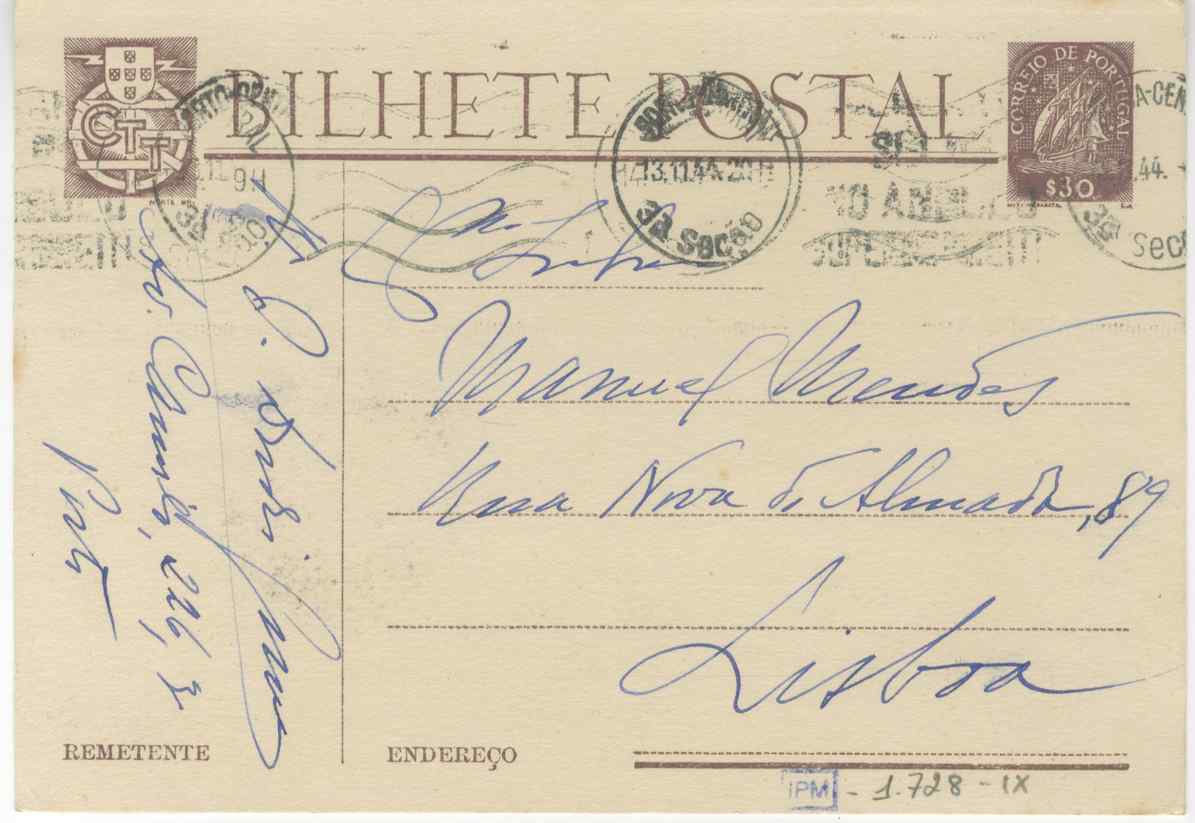 BILHETE POSTAL
CTT
CORREIO DE PORTUGAL
$30
13.11.44-20H
3ª Secção
9H
44.
3ª Secç
Manuel Mendes
Rua Nova d'Almada, 89
Lisboa
Av. Camilo, 226, E
Porto
REMETENTE
ENDEREÇO
IPM - 1.728 - IX